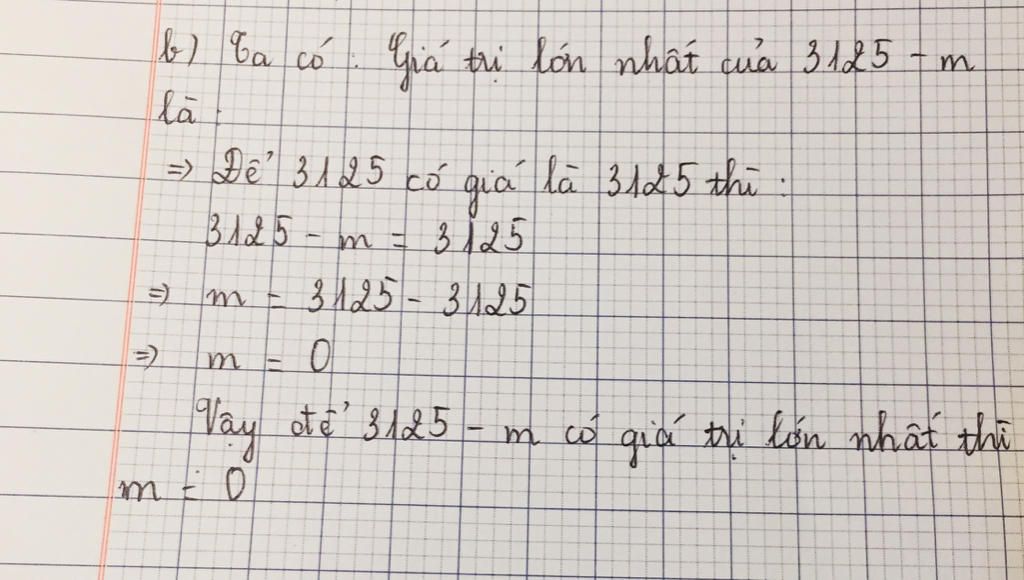 b) Ta có : Giá trị lớn nhất của 3125 - m
là :
=> Để 3125 có giá là 3125 thì :
3125 - m = 3125
=> m = 3125 - 3125
=> m = 0
Vậy để 3125 - m có giá trị lớn nhất thì
m = 0